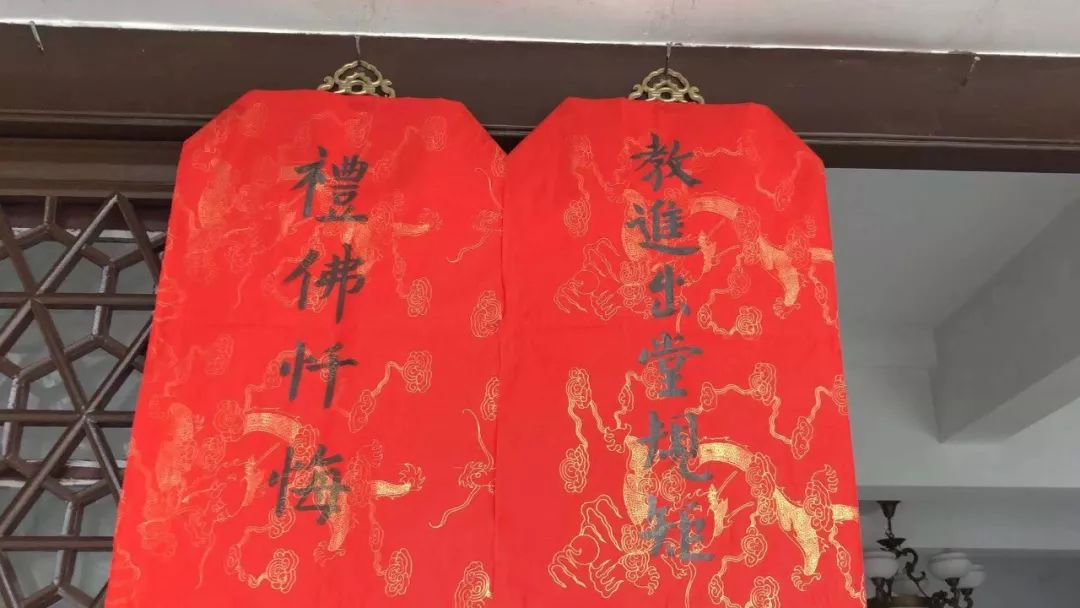 教進出堂規矩
禮佛忏悔